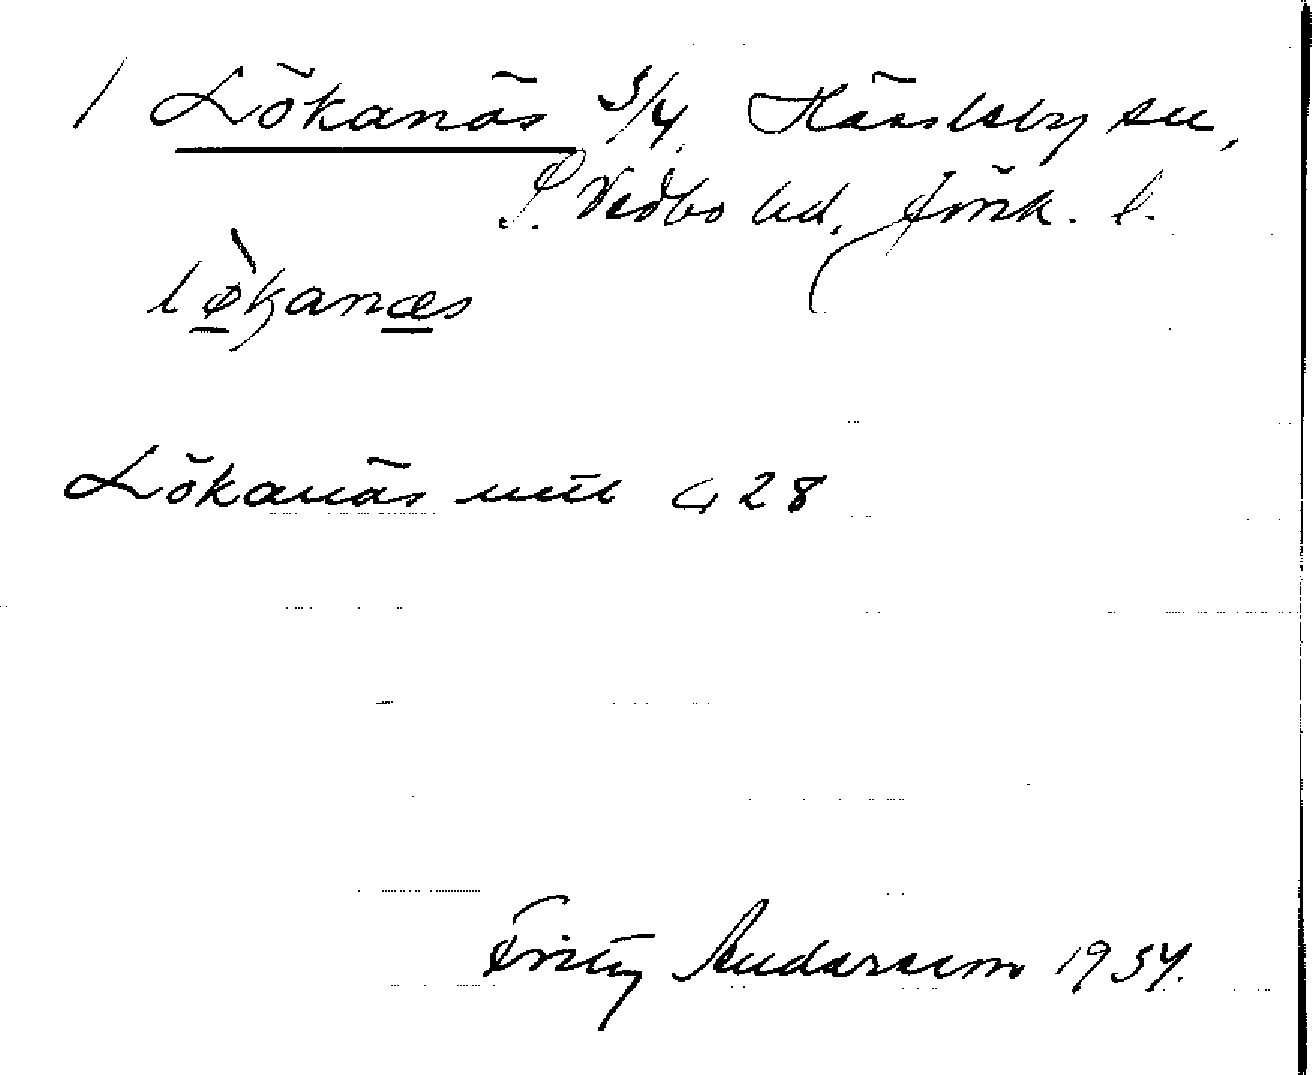 1 Lökanäs 3/4 Hässleby sn,
S. Vedbo hd, Jönk. l.
løkanæs
Lökanäs mtl C 28
Andersson 1934.